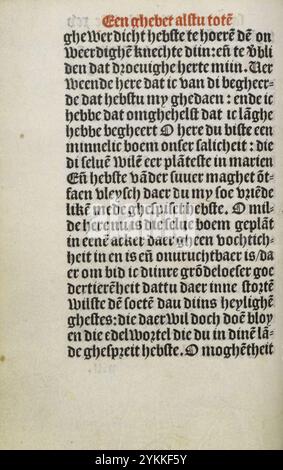 Een ghebet alstu totē
ghewerdicht hebste te hoerē dē on
weerdighē knechte diin: eñ te vbli
den dat droeuighe herte miin. Ver
weende here dat ic van di begheer-
de dat hebstu my ghedaen: ende ic
hebbe dat omghehelst dat ic lāghe
hebbe begheert O here du biste een
minnelic boem onser salicheit: die
di seluē wilē eer plāteste in marien
Eñ hebste vāder suuer maghet ōt-
faen vleysch daer du my soe vriēde
likē mede ghespijst hebste. O mil-
de here nu is die selue boem geplāt
in eenē acker daer gheen vochtich-
heit in en is eñ onuruchtbaer is/ da
er om bid ic diinre grōdeloeser goe
dertierēheit dattu daer inne stortē
wilste dē soetē dau diins heylighē
gheestes: die daer wil doch doē bloy
en die edel wortel die du in dinē lā-
de ghespreit hebste. O moghētheit
alamy
Image ID: 2YKKF5Y
www.alamy.com